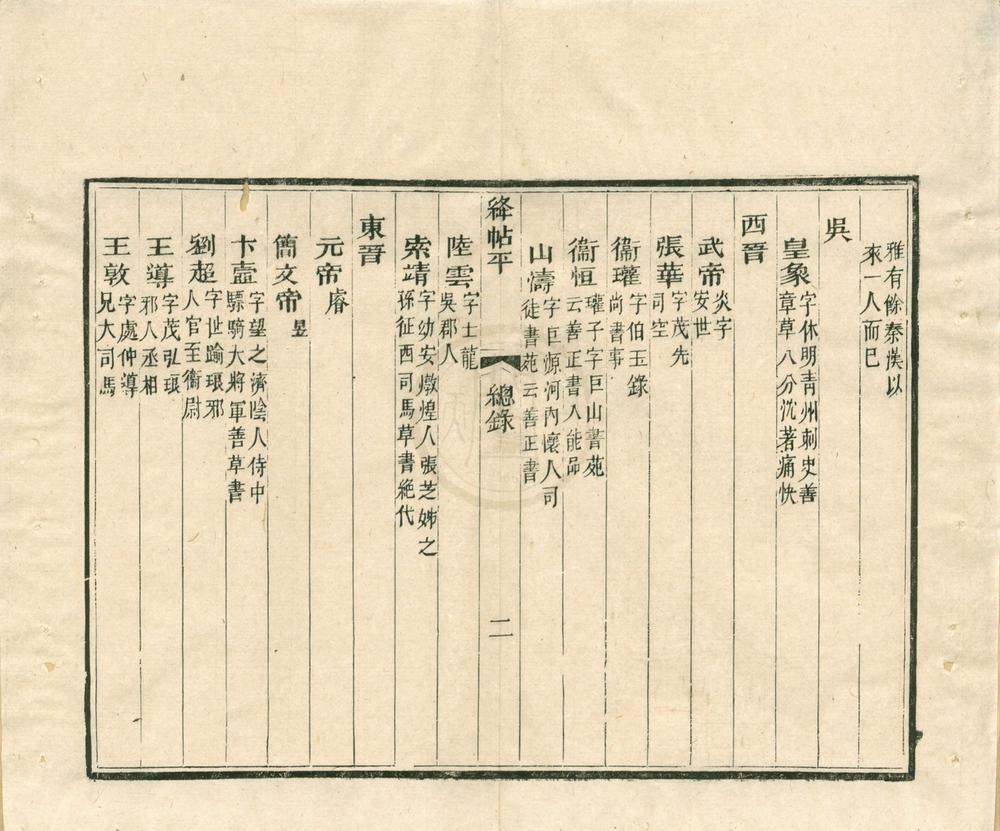 雅有餘秦漢以
來一人而已
吳
皇象字休明青州刺史善
章草八分沈著痛快
西晉
武帝炎字
安世
張華字茂先
司空
衞瓘字伯玉錄
尚書事
衞恒瓘子字巨山書苑
云善正書人能品
山濤字巨源河內懷人司
徒書苑云善正書
絳帖平 總錄 二
陸雲字士龍
吳郡人
索靖字幼安燉煌人張芝姊之
孫征西司馬草書絶代
東晉
元帝睿
簡文帝昱
卞壼字望之濟陰人侍中
驃騎大將軍善草書
劉超字世踰琅邪
人官至衞尉
王導字茂弘琅
邪人丞相
王敦字處仲導
兄大司馬